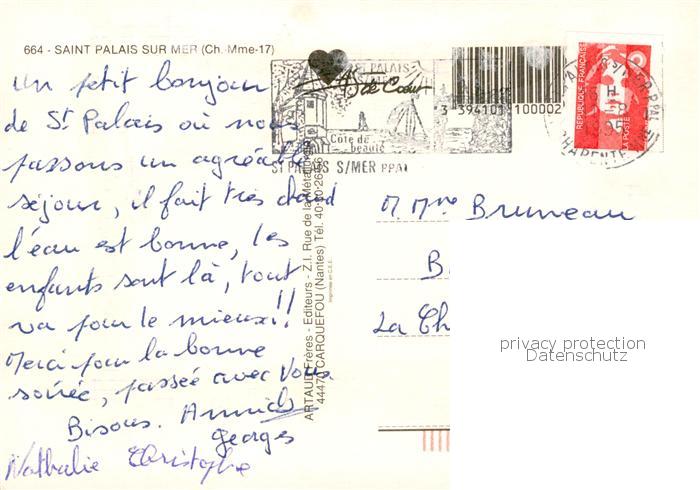 664 - SAINT PALAIS SUR MER (Ch.-Mme-17)
Un petit bonjour
de St Palais où nous
passons un agréable
séjour, il fait très chaud
l'eau est bonne, les
enfants sont là, tout
va pour le mieux!!
Merci pour la bonne
soirée, passée avec vous
Bisous. Annick
Georges
Nathalie Christophe
ARTAUD Frères - Editeurs - Z.I. Rue de la Métallurgie
44470 CARQUEFOU (Nantes) Tél. 40
Imprimé en C.E.E.
ST PALAIS
As de Coeur
Côte de
beauté
ST PALAIS S/MER PPAL
3 394101 100002
REPUBLIQUE FRANÇAISE
LA POSTE
CHARENTE
M Mme Bruneau
B
La Ch
privacy protection
Datenschutz